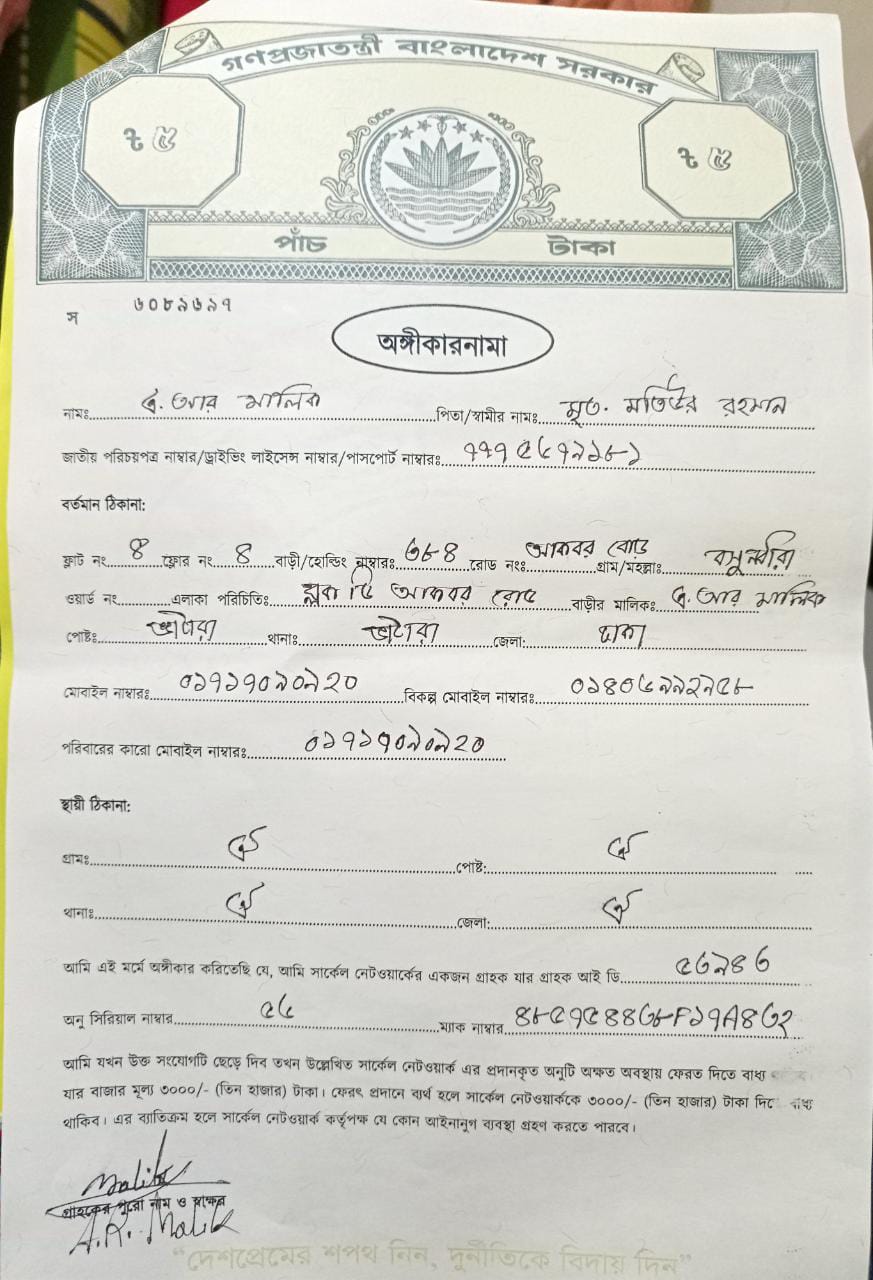 গণপ্রজাতন্ত্রী বাংলাদেশ সরকার
৳ ৫ ৳ ৫
পাঁচ টাকা
স ৬০৮৯৬৯৭
অঙ্গীকারনামা
নামঃ এ. আর মালিক পিতা/স্বামীর নামঃ মৃত. মতিউর রহমান
জাতীয় পরিচয়পত্র নাম্বার/ড্রাইভিং লাইসেন্স নাম্বার/পাসপোর্ট নাম্বারঃ ৭৭৭৫৬৭৯১৮১
বর্তমান ঠিকানা:
ফ্লাট নং 8 ফ্লোর নং 8 বাড়ী/হোল্ডিং নাম্বারঃ ৩৮৪ রোড নংঃ আকবর রোড গ্রাম/মহল্লাঃ বসুন্ধরা
ওয়ার্ড নং এলাকা পরিচিতিঃ ব্লক ডি আকবর রোড বাড়ীর মালিকঃ এ. আর মালিক
পোষ্টঃ ভাটারা থানাঃ ভাটারা জেলা: ঢাকা
মোবাইল নাম্বারঃ ০১৭১৭০৯০৯২০ বিকল্প মোবাইল নাম্বারঃ ০১৪০৬৯৯২৯৫৮
পরিবারের কারো মোবাইল নাম্বারঃ ০১৭১৭০৯০৯২০
স্থায়ী ঠিকানা:
গ্রামঃ ঐ পোষ্ট: ঐ
থানাঃ ঐ জেলা: ঐ
আমি এই মর্মে অঙ্গীকার করিতেছি যে, আমি সার্কেল নেটওয়ার্কের একজন গ্রাহক যার গ্রাহক আই ডি ৫৩৯৪৩
অনু সিরিয়াল নাম্বার ৫৬ ম্যাক নাম্বার ৪৮৫৭৫৪৪৩৮F১৭A৪৩২
আমি যখন উক্ত সংযোগটি ছেড়ে দিব তখন উল্লেখিত সার্কেল নেটওয়ার্ক এর প্রদানকৃত অনুটি অক্ষত অবস্থায় ফেরত দিতে বাধ্য
যার বাজার মূল্য ৩০০০/- (তিন হাজার) টাকা। ফেরৎ প্রদানে ব্যর্থ হলে সার্কেল নেটওয়ার্ককে ৩০০০/- (তিন হাজার) টাকা দিতে বাধ্য
থাকিব। এর ব্যতিক্রম হলে সার্কেল নেটওয়ার্ক কর্তৃপক্ষ যে কোন আইনানুগ ব্যবস্থা গ্রহণ করতে পারবে।
Malik
গ্রাহকের পুরো নাম ও স্বাক্ষর
A.R. Malik
"দেশপ্রেমের শপথ নিন, দুর্নীতিকে বিদায় দিন"